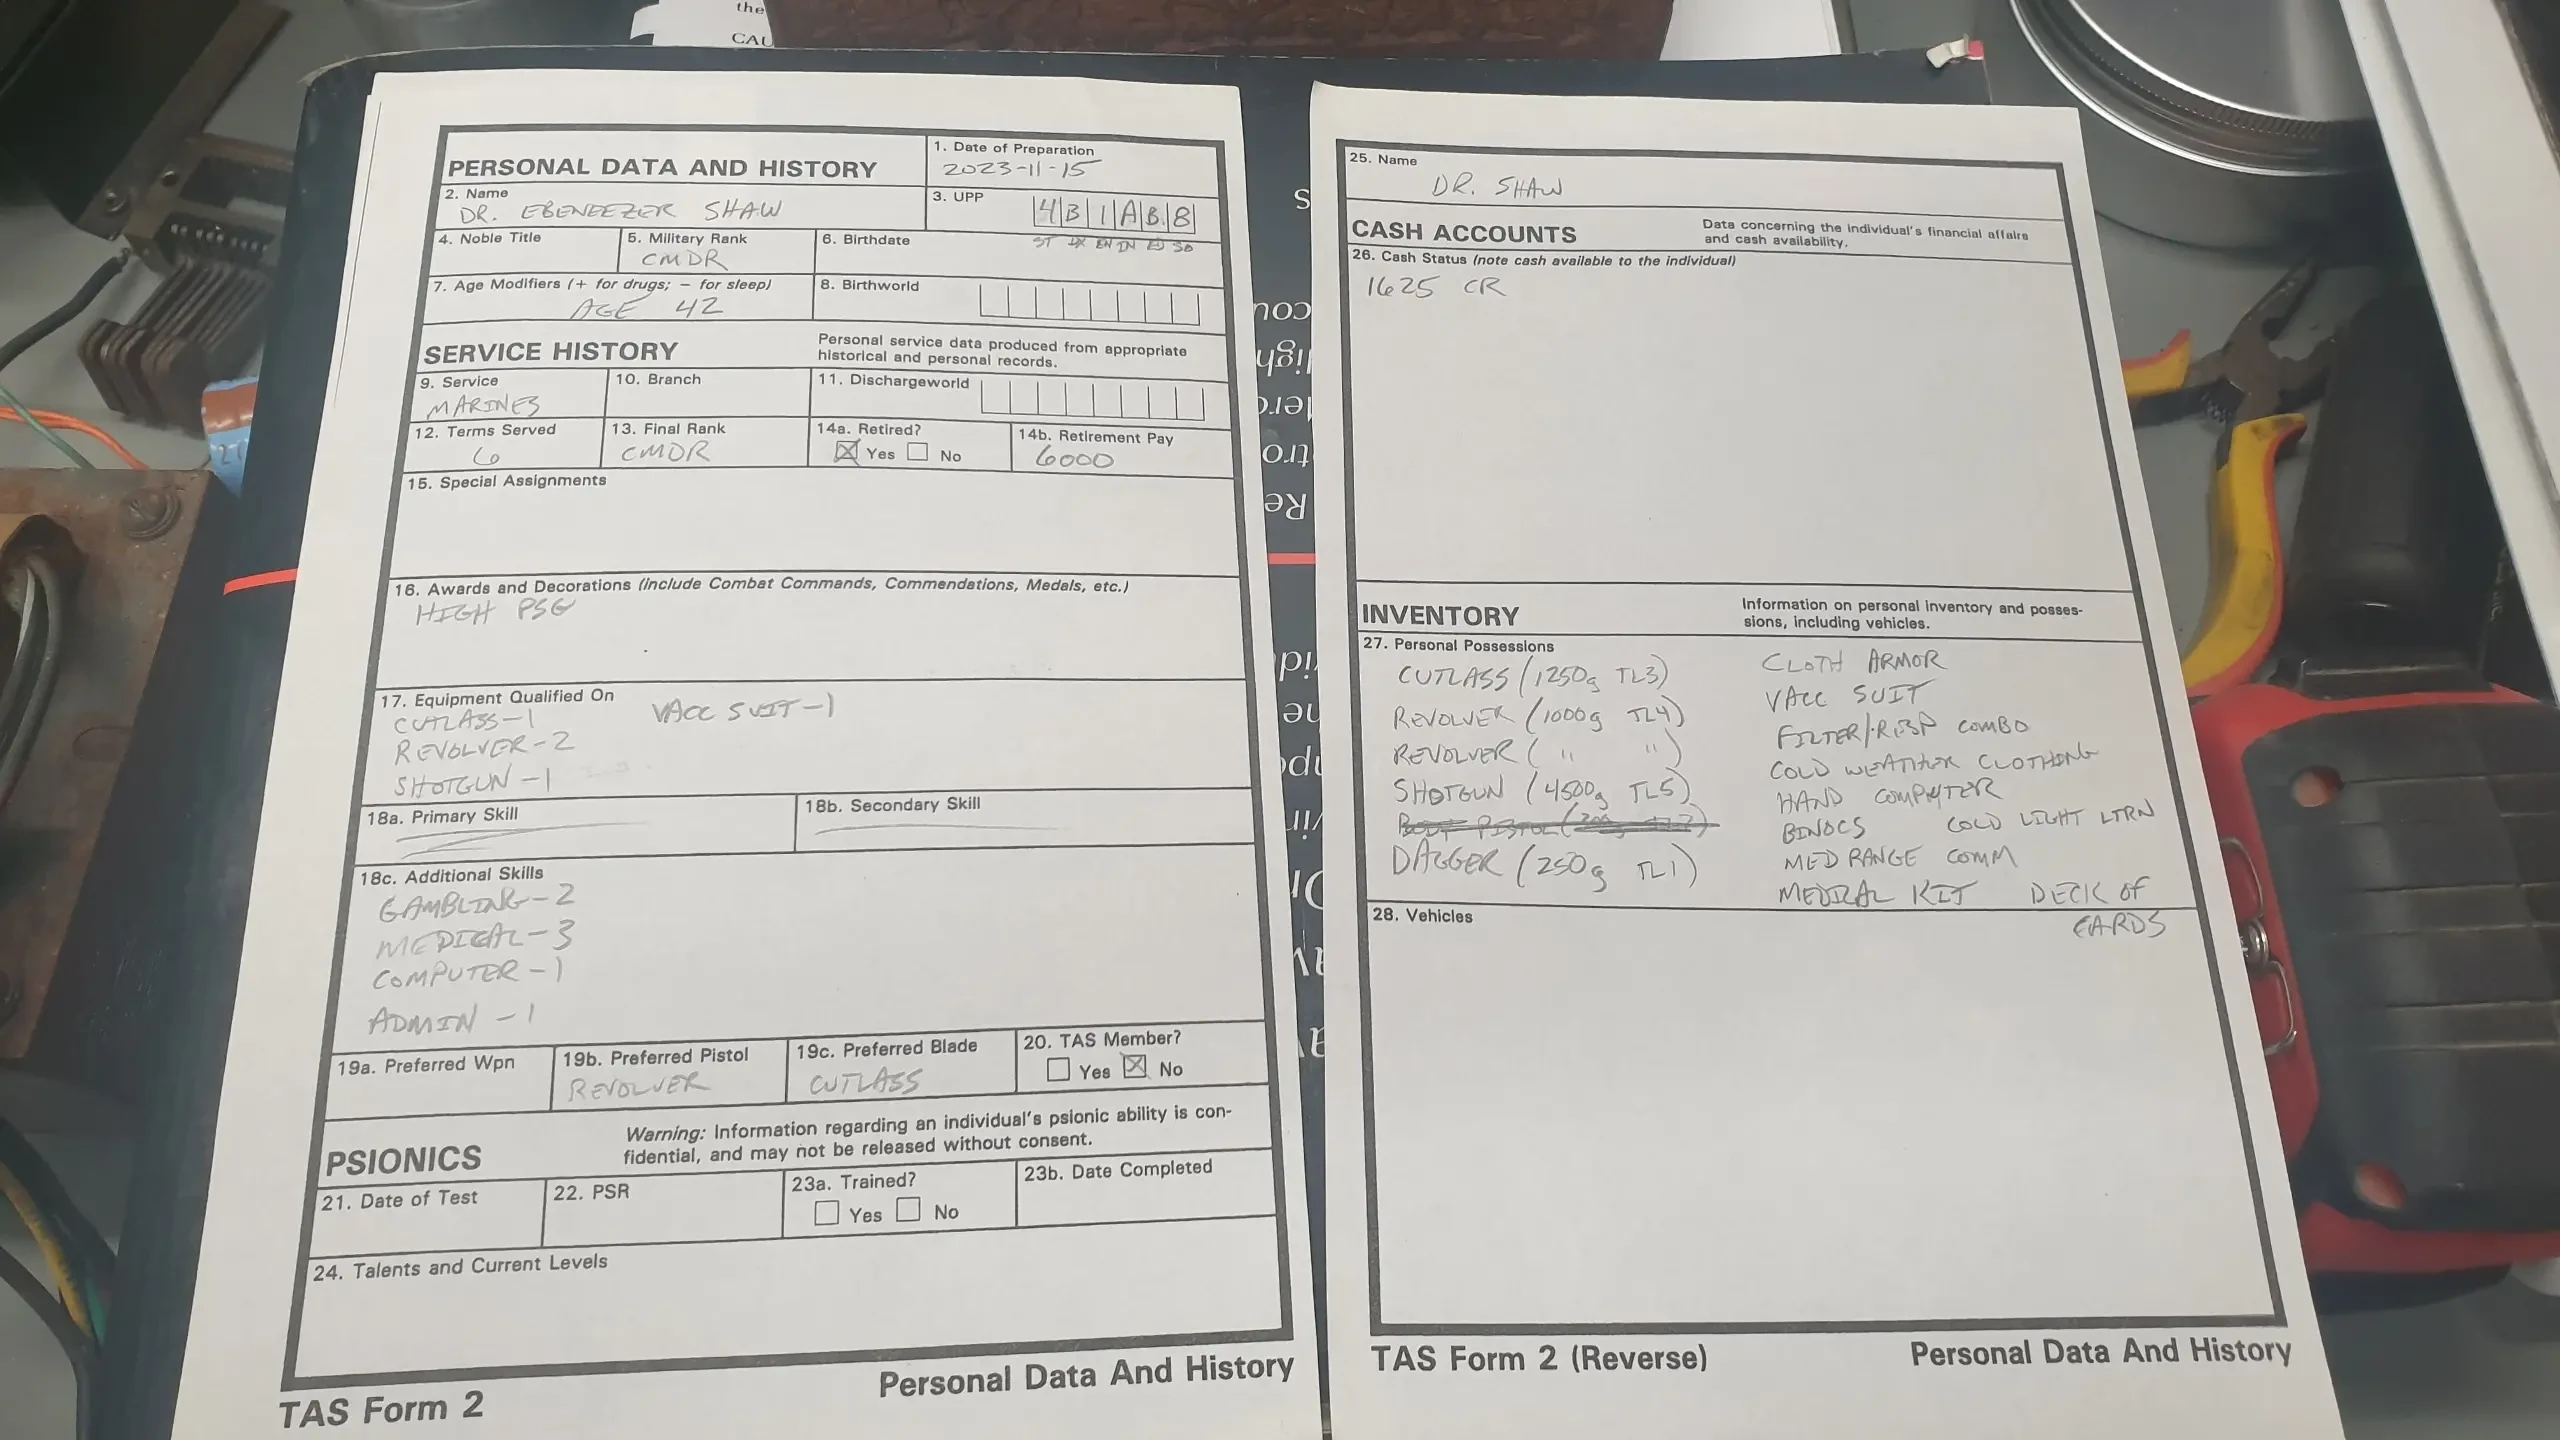 the
CAU
PERSONAL DATA AND HISTORY
1. Date of Preparation
2023-11-15
2. Name
DR. EBENEEZER SHAW
3. UPP
4 B 1 A B 8
ST DX EN IN ED SO
4. Noble Title
5. Military Rank
CMDR
6. Birthdate
7. Age Modifiers (+ for drugs; – for sleep)
AGE 42
8. Birthworld
SERVICE HISTORY
Personal service data produced from appropriate
historical and personal records.
9. Service
MARINES
10. Branch
11. Dischargeworld
12. Terms Served
6
13. Final Rank
CMDR
14a. Retired?
Yes No
14b. Retirement Pay
6000
15. Special Assignments
16. Awards and Decorations (include Combat Commands, Commendations, Medals, etc.)
HIGH PSG
17. Equipment Qualified On
CUTLASS-1
VACC SUIT-1
REVOLVER-2
SHOTGUN-1
18a. Primary Skill
18b. Secondary Skill
18c. Additional Skills
GAMBLING-2
MEDICAL-3
COMPUTER-1
ADMIN-1
19a. Preferred Wpn
19b. Preferred Pistol
REVOLVER
19c. Preferred Blade
CUTLASS
20. TAS Member?
Yes No
PSIONICS
Warning: Information regarding an individual's psionic ability is con-
fidential, and may not be released without consent.
21. Date of Test
22. PSR
23a. Trained?
Yes No
23b. Date Completed
24. Talents and Current Levels
TAS Form 2
Personal Data And History
25. Name
DR. SHAW
CASH ACCOUNTS
Data concerning the individual's financial affairs
and cash availability.
26. Cash Status (note cash available to the individual)
1625 CR
INVENTORY
Information on personal inventory and posses-
sions, including vehicles.
27. Personal Possessions
CUTLASS (1250g TL3)
REVOLVER (1000g TL4)
REVOLVER ( " " )
SHOTGUN (4500g TL5)
DAGGER (250g TL1)
CLOTH ARMOR
VACC SUIT
FILTER/RESP COMBO
COLD WEATHER CLOTHING
HAND COMPUTER
BINOCS COLD LIGHT LTRN
MED RANGE COMM
MEDICAL KIT DECK OF
CARDS
28. Vehicles
TAS Form 2 (Reverse)
Personal Data And History